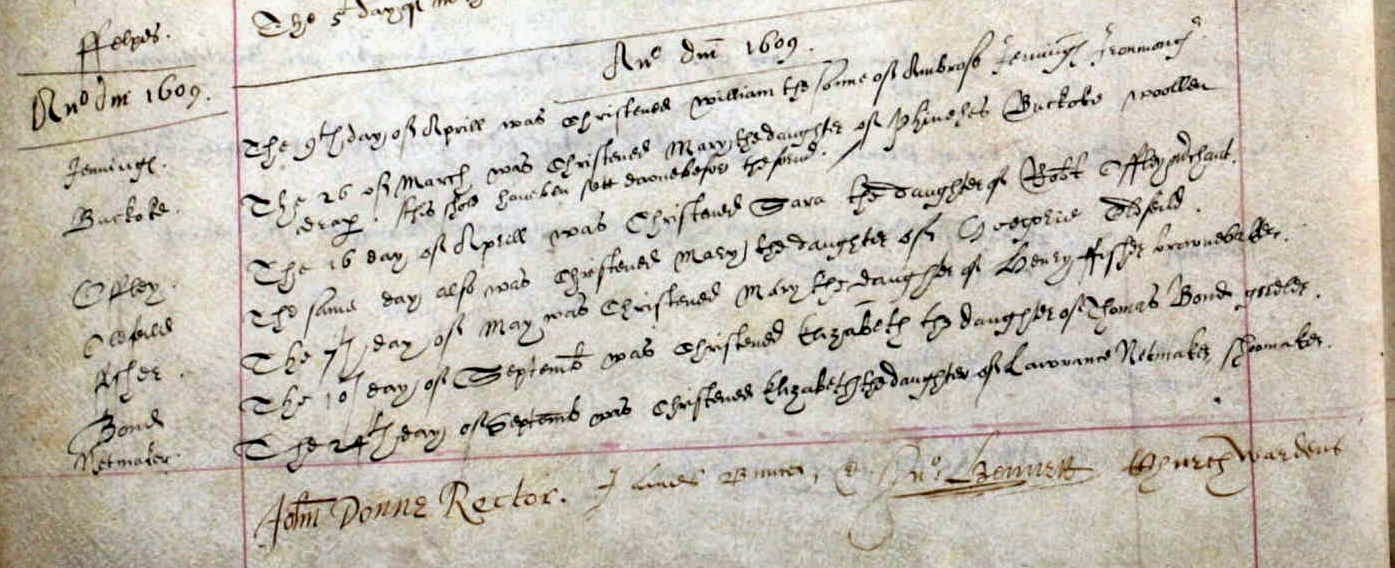 ffelpes.
The 5 day of
Ano dm 1609.
Ano dm 1609.
Jennings.
The 9th day of Aprill was Christened William the sonne of Ambrose Jennings Ironmong
Buckoke.
The 26 of March was Christened Mary the daughter of Phinehes Buckoke woollen
draper this shold haue ben sett downe before the
Offley.
The 16 day of Aprill was Christened Sara the daughter of Robt Offley mchant.
Oldfeild
The same day also was Christened Mary the daughter of Gregorie Oldfeild.
ffisher.
The 7th day of May was Christened Mary the daughter of Henry ffisher brownebaker.
Bond
The 10th day of Septemb was Christened Elizabeth the daughter of Thomas Bond girdler.
Netmaker.
The 24th day of Septemb was Christened Elizabeth the daughter of Lawrance Netmaker shoomaker.
John Donne Rector. Jno. Bennett Church Wardens